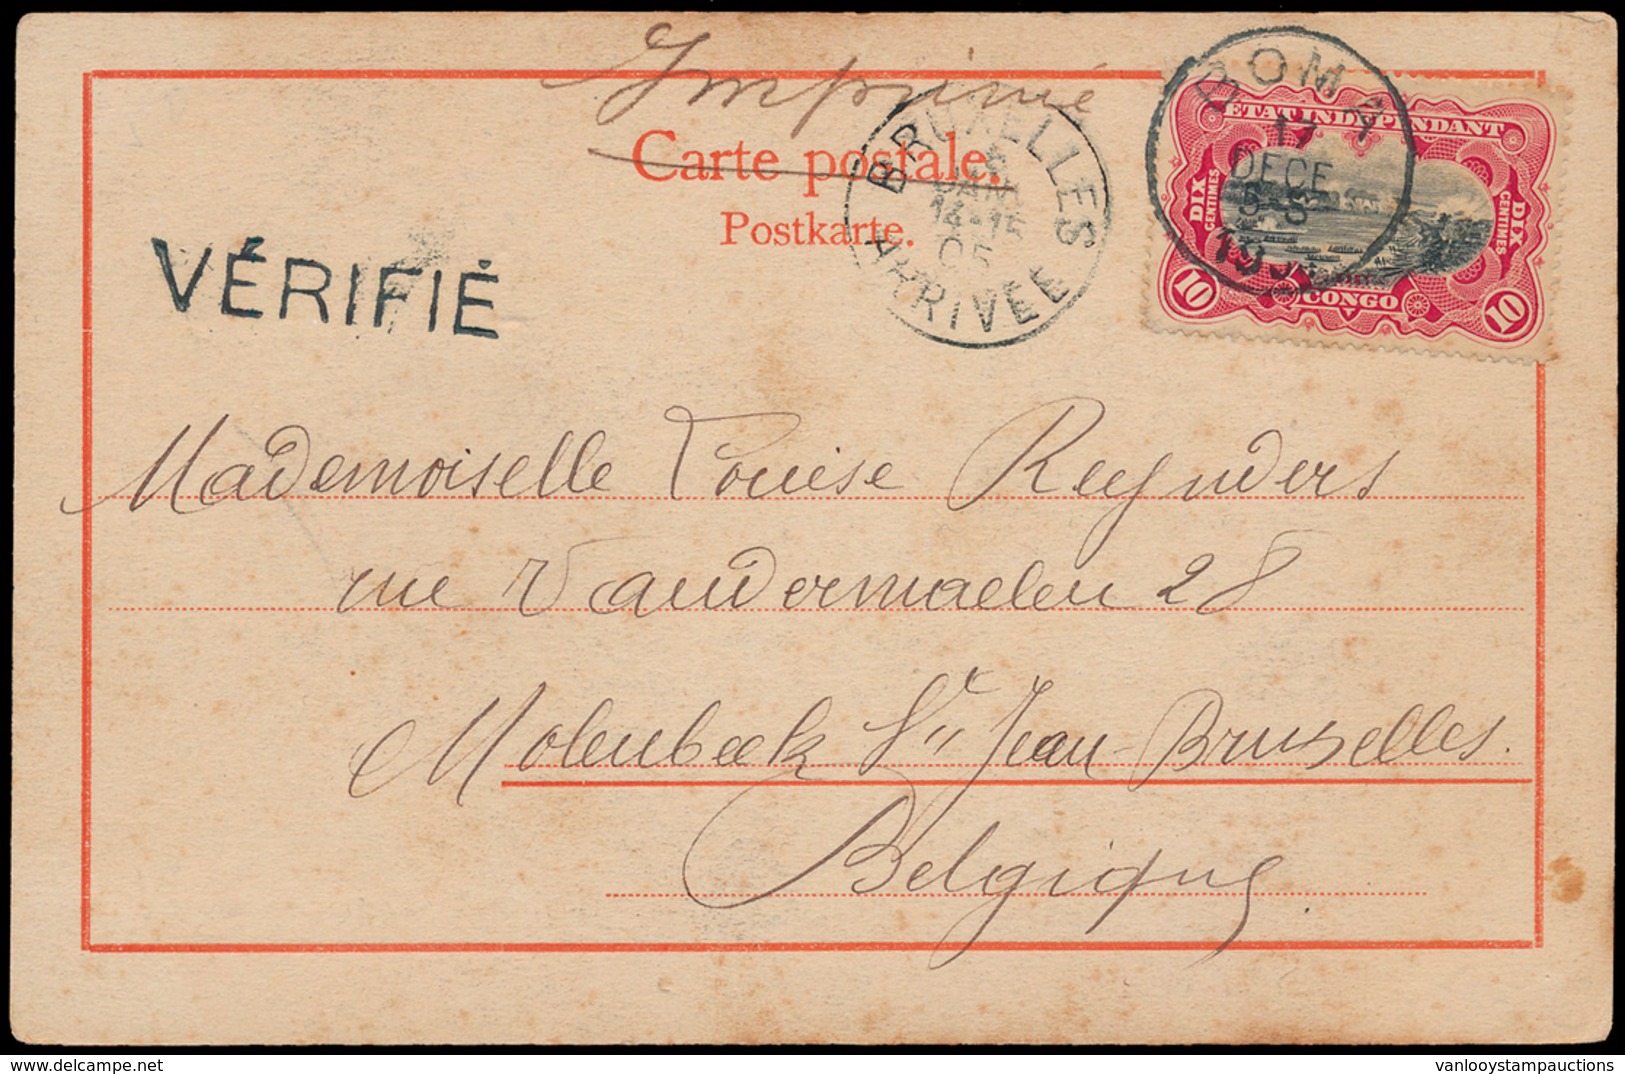 Imprimé
Carte postale.
Postkarte.
VÉRIFIÉ
BRUXELLES
JANV
14-15
05
ARRIVÉE
BOMA
17
DECE
5-S
ETAT INDÉPENDANT
DIX CENTIMES
DIX CENTIMES
10 CONGO 10
Mademoiselle Louise Reynders
rue Vandermaelen 28
Molenbeek St Jean-Bruxelles.
Belgique
vanlooystampauctions